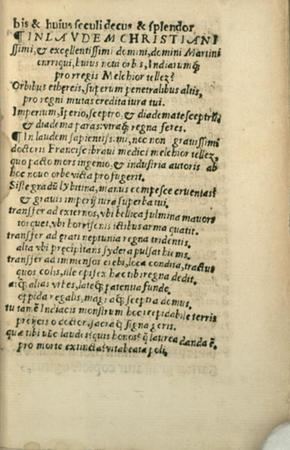 bis & huius seculi decus & splendor
¶ IN LAVDEM CHRISTIANI
ssimi, & excellentissimi domini, domini Martini
enrriqui, huius noui orbis, Indiarumq̃
pro regis Melchior tellez.
Orbibus ethereis, superum penetralibus altis,
pro regni mutas credita iura tui.
Imperium, Iperio, sceptro, & diademate sceptrũ
& diadema paras: vitaq̃ regna feres.
¶ In laudem sapientissimi, nec non grauissimi
doctoris Francisci braui medici melchior tellez,
quo pacto mors ingenio, & industria autoris ab
hoc nouo orbe victa profugerit.
Siste gradũ lybitina, manus compesce cruentas
& grauis imperij iura superba tui.
transfer ad externos, vbi bellica fulmina mauors
torquet, vbi horrisonis ictibus arma quatit.
transfer ad grati neptunia regna tridentis,
alta vbi precipitans sydera pulsat
transfer ad immensos loca condita, tractus
quos colis, ille opifex hac tibi regne dedit.
alias vrbes, lateq̃ patentia funde
oppida regalis, magnaq̃ sceptra domus.
tu tanẽ Indiacis monstrum hoc terris
o doctor, sacraq̃ signa geris.
laudesiquis honos, q̃ laurea danda ẽ,
pro morte extincta vita beata poli.